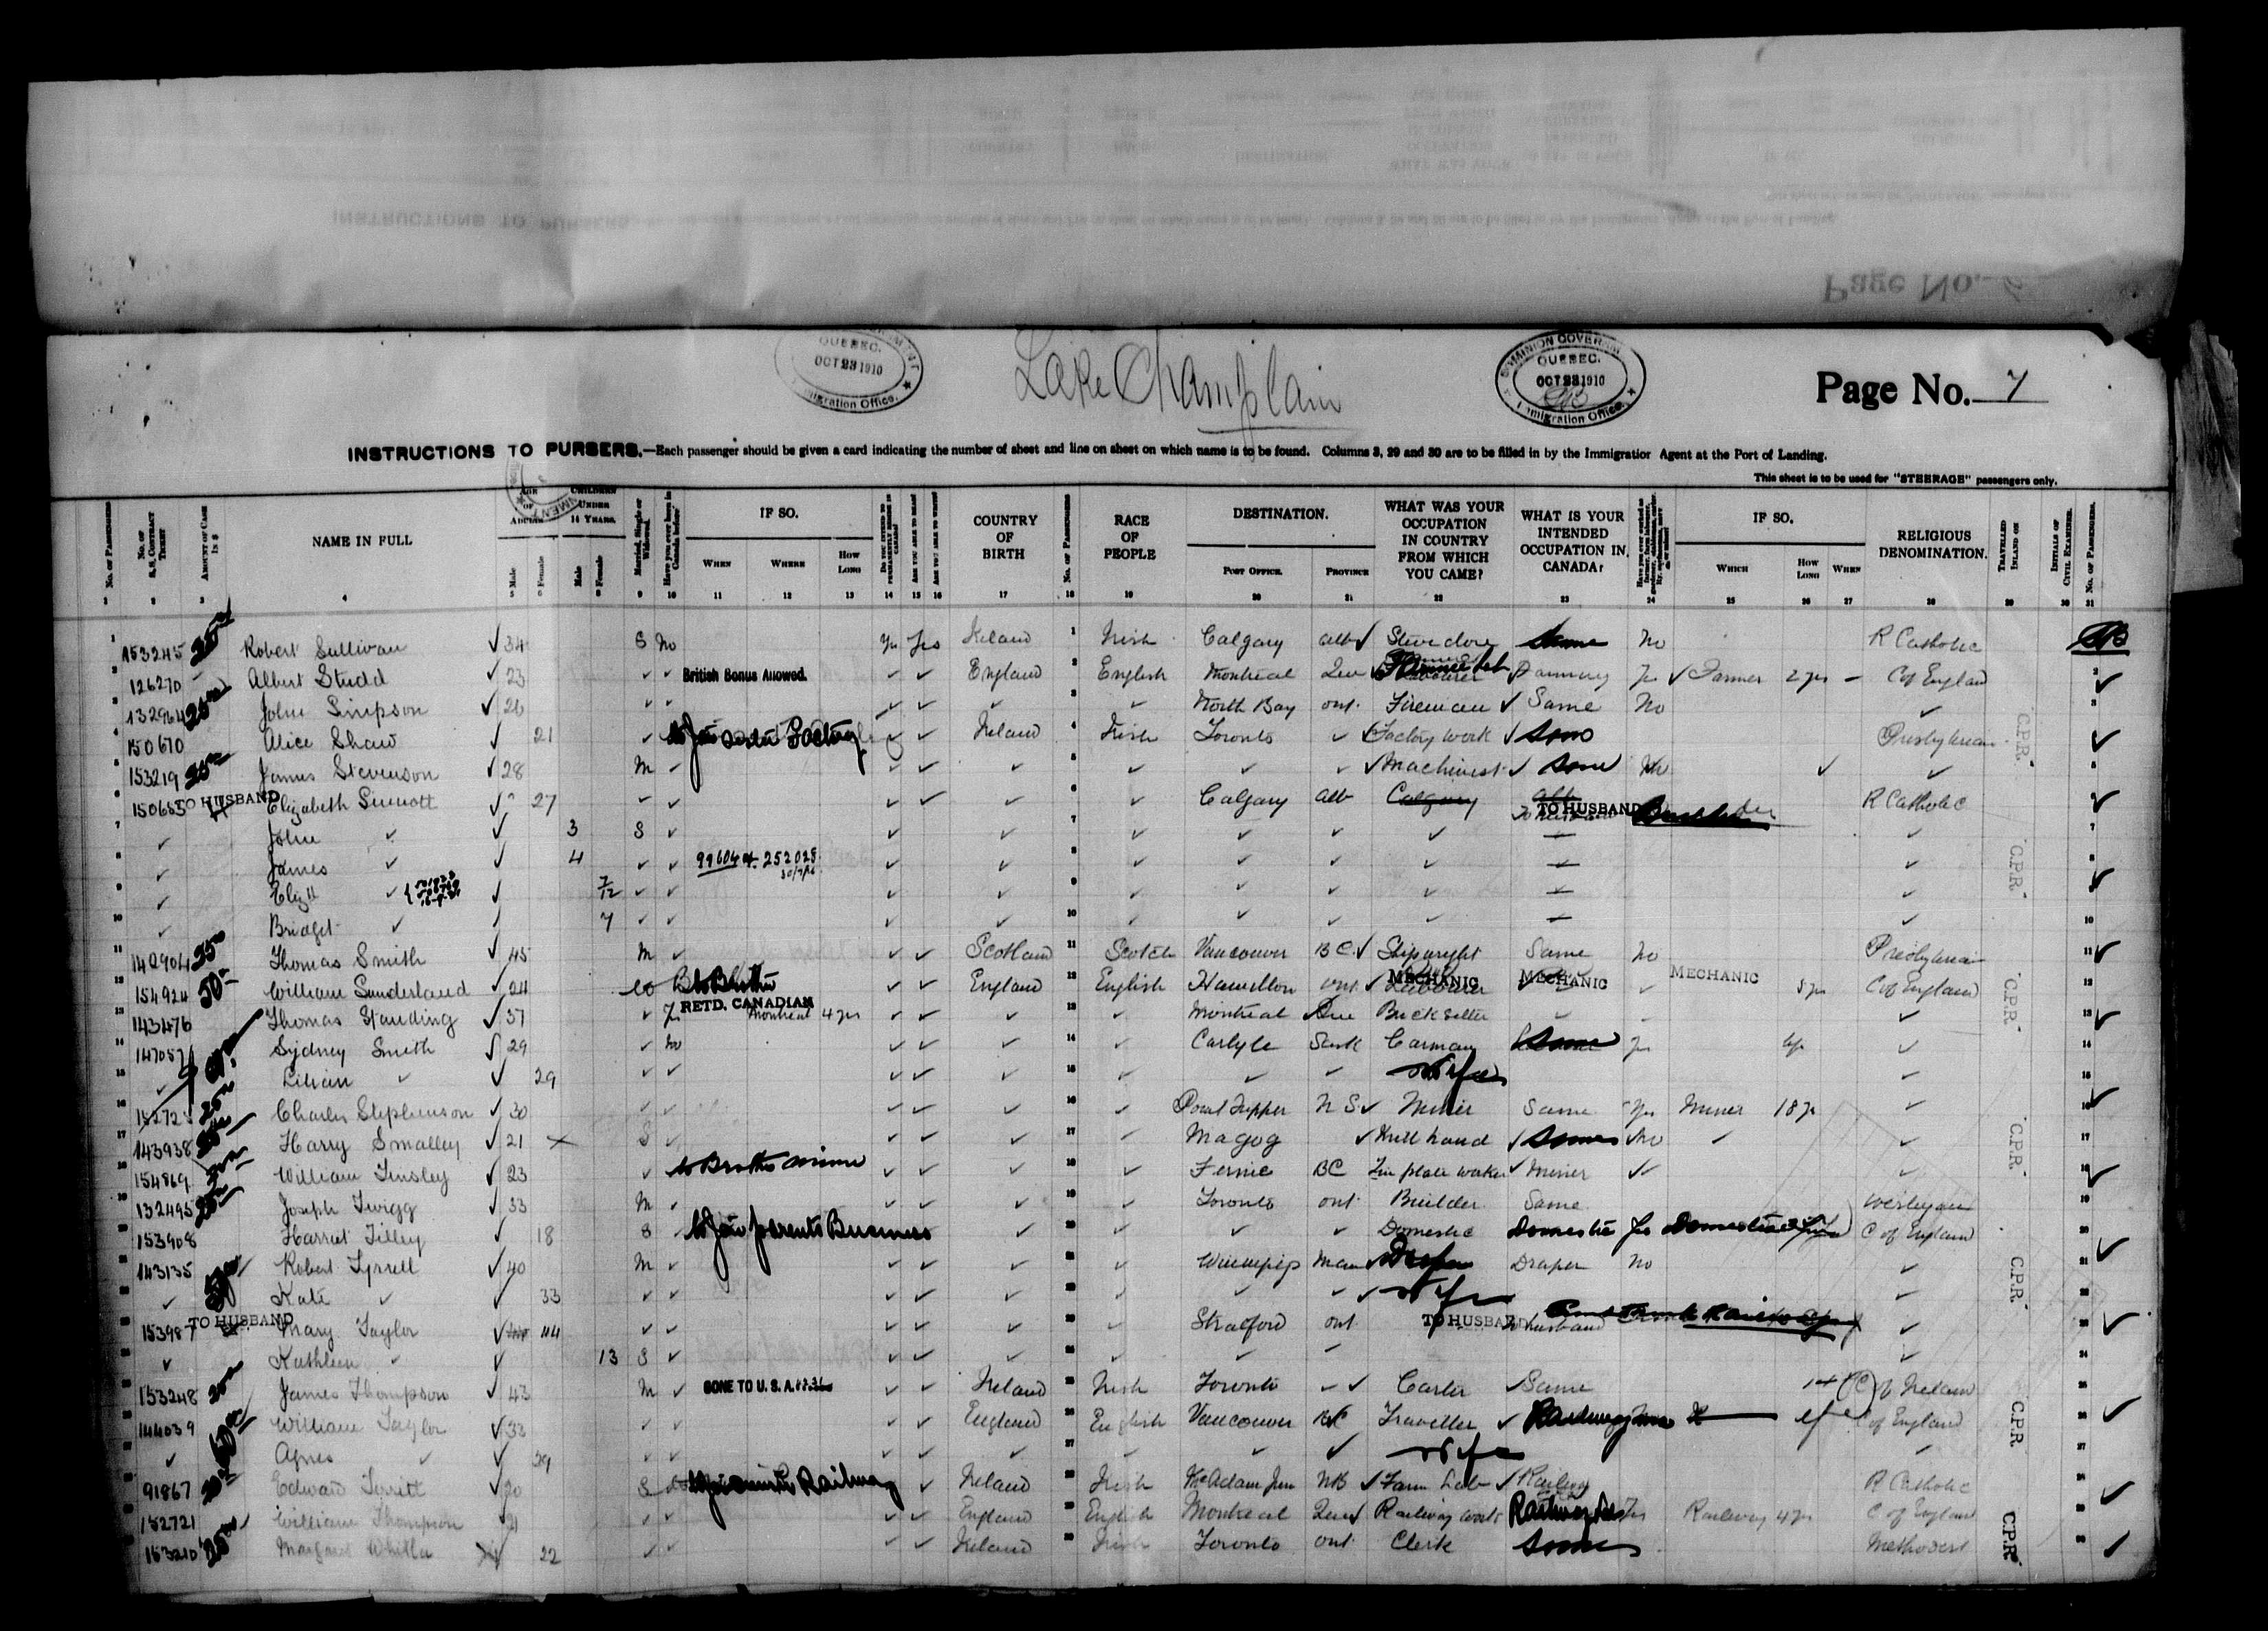 Page No.
QUEBEC.
OCT 23 1910
Immigration Office.
Lake Champlain
DOMINION GOVERNMENT
QUEBEC.
OCT 23 1910
Immigration Office.
Page No. 7
INSTRUCTIONS TO PURSERS.—Each passenger should be given a card indicating the number of sheet and line on sheet on which name is to be found. Columns 3, 29 and 30 are to be filled in by the Immigration Agent at the Port of Landing.
This sheet is to be used for "STEERAGE" passengers only.
No. of Passengers No. of S.S. Contract Ticket Amount of Cash in $ NAME IN FULL Age of Adults Male Female Children Under 14 Years. Male Female Married, Single or Widowed. Have you ever been in Canada before? IF SO. When Where How Long Do you intend to permanently reside in Canada? Are you able to read Are you able to write COUNTRY OF BIRTH No. of Passengers RACE OF PEOPLE DESTINATION. Post Office. Province WHAT WAS YOUR OCCUPATION IN COUNTRY FROM WHICH YOU CAME? WHAT IS YOUR INTENDED OCCUPATION IN CANADA? IF SO. Which How Long When RELIGIOUS DENOMINATION. Travelled Inland on Initials of Civil Examiner. No. of Passengers.
1 153245 25 Robert Sullivan 34 S No Yes Yes Ireland 1 Irish Calgary alb Stevedore Same No R Catholic
2 126270 Albert Studd 23 British Bonus Allowed. England 2 English Montreal Que Farming Yes Farmer 2 yrs C of England 2
3 132964 25 John Simpson 26 3 North Bay ont. Fireman Same No 3
4 150670 Alice Shaw 21 to Join sister Factory Ireland 4 Irish Toronto Factory work Same Presbyterian 4
5 153219 25 James Stevenson 28 M 5 Machinist Same No 5
6 150685 TO HUSBAND Elizabeth Sinnott 27 6 Calgary alb Calgary alb TO HUSBAND R Catholic
7 John 3 S 7 7
8 James 4 99604 252028 8 8
9 Eliz th 7/12 9 9
10 Bridget 7 10 10
11 142904 25 Thomas Smith 45 M Scotland 11 Scotch Vancouver B C Shipwright Same No Presbyterian 11
12 154924 50 William Sunderland 24 to Brother England 12 English Hamilton ont MECHANIC MECHANIC MECHANIC 5 yrs C of England 12
13 143476 Thomas Standing 37 RETD. CANADIAN Montreal 4 yrs 13 Montreal Que 13
14 147057 Sydney Smith 29 No 14 Carlyle Sask Carman Same Yes 14
15 Lilian 29 15 Wife 15
16 152723 25 Charles Stephenson 30 16 Port Tupper N S Miner Same Yes Miner 18 yrs 16
17 143938 25 Harry Smalley 21 S 17 Magog Mill hand Same No 17
18 154869 William Tinsley 23 to Brother 18 Fernie BC Tin plate worker Miner 18
19 132495 25 Joseph Twigg 33 M 19 Toronto ont Builder Same Wesleyan 19
20 153908 Harriet Tilley 18 S to Join parents Business 20 Domestic Domestic Yes Domestic C of England 20
21 143135 Robert Tyrrell 40 M 21 Winnipeg Man Draper Draper No 21
22 Kate 33 22 Wife 22
23 153987 TO HUSBAND Mary Taylor 44 23 Stratford ont TO HUSBAND to husband 23
24 Kathleen 13 S 24 24
25 153248 25 James Thompson 43 M GONE TO U.S.A. Ireland 25 Irish Toronto Carter Same C of Ireland 25
26 144039 William Taylor 33 England 26 English Vancouver BC Traveller C of England 26
27 Agnes 29 27 Wife 27
28 91867 Edward 20 S Railway Ireland 28 Irish McAdam Jun NB Farm Lab Railway R Catholic 28
29 152721 William Thompson 21 England 29 English Montreal Que Railway work Railway Yes Railway 4 yrs C of England 29
30 153210 25 Margaret 22 Ireland 30 Irish Toronto ont Clerk Same Methodist 30
C.P.R.
C.P.R.
C.P.R.
C.P.R.
C.P.R.
C.P.R.
C.P.R.